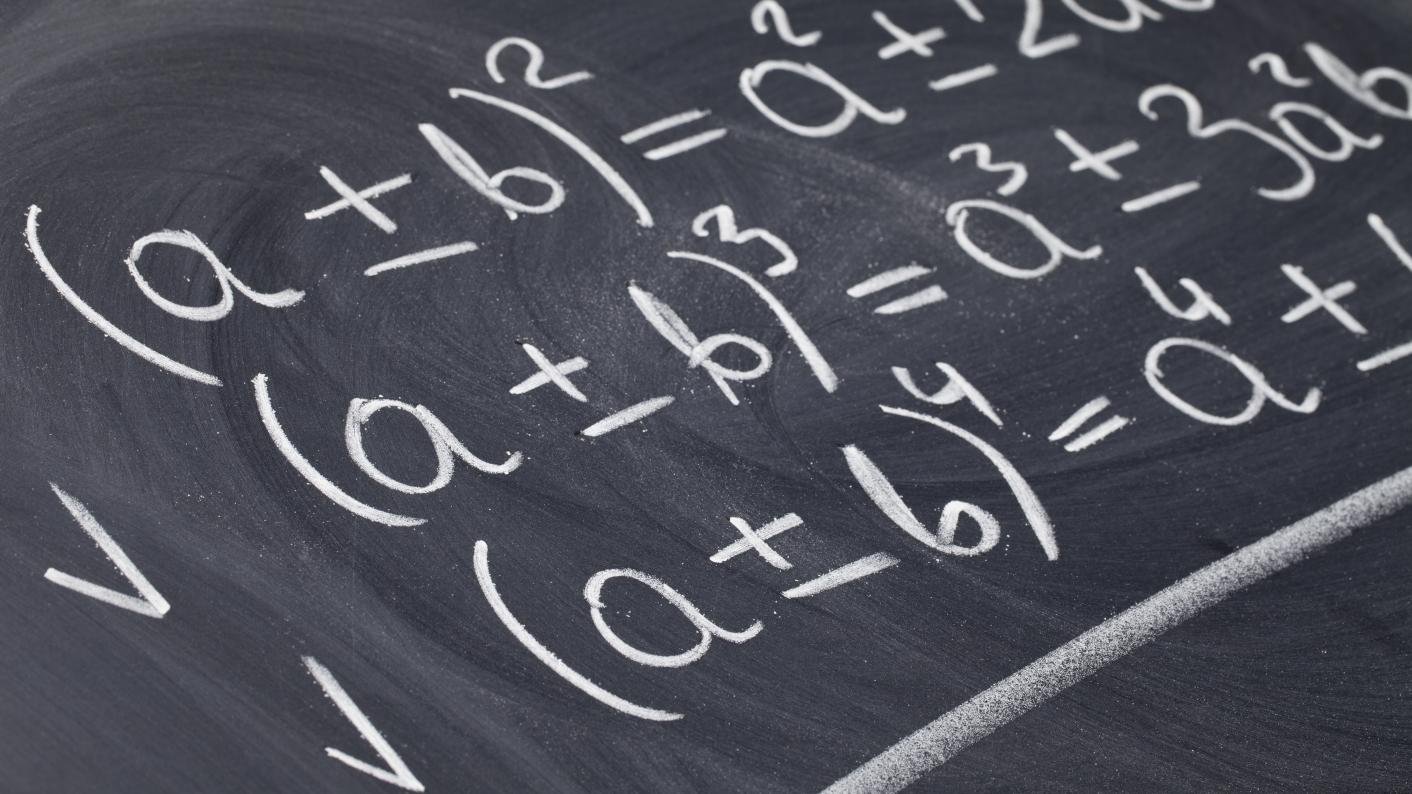 (a ± b)² = a² ± 2a
(a ± b)³ = a³ ± 3a²b
(a ± b)⁴ = a⁴ ±